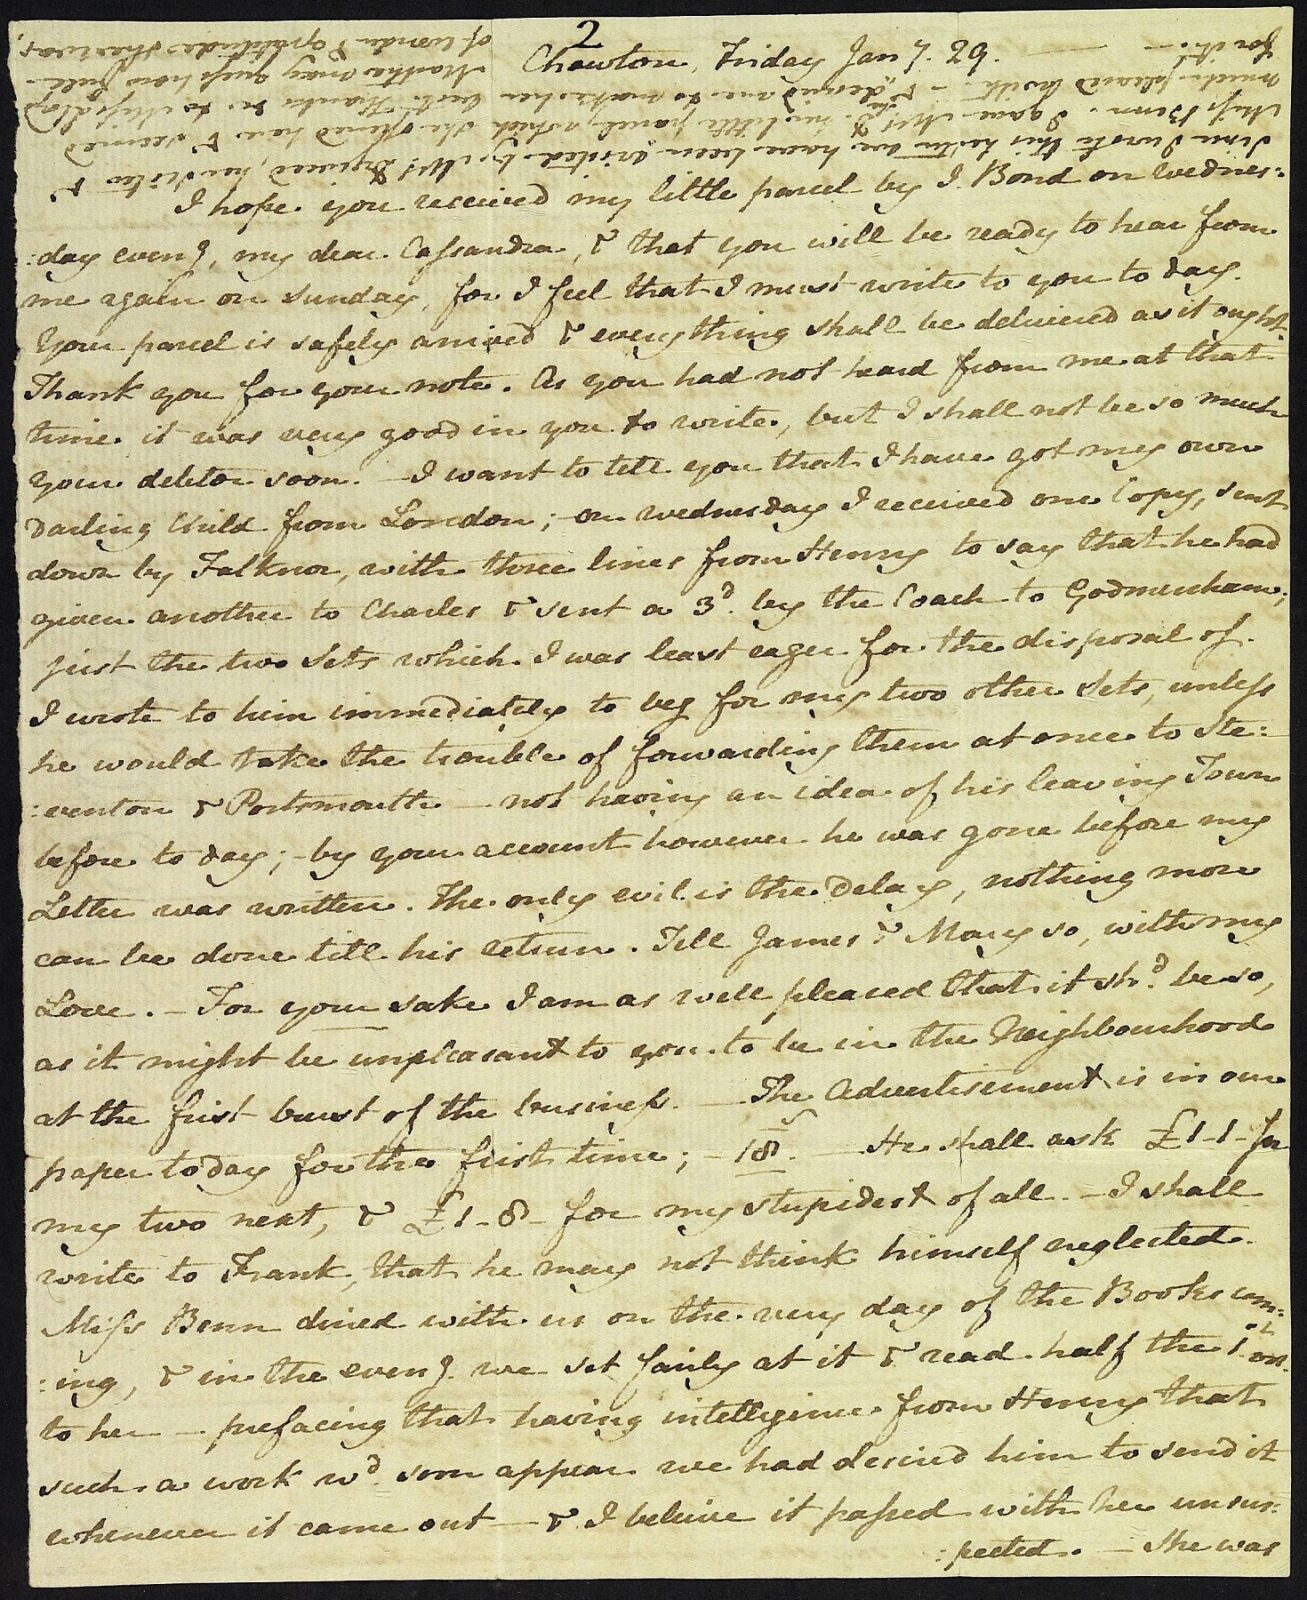 2
Chawton, Friday Jany. 29.
I hope you received my little parcel by J. Bond on Wednes:
:day eveng, my dear Cassandra, & that you will be ready to hear from
me again on Sunday, for I feel that I must write to you to day.
Your parcel is safely arrived & everything shall be delivered as it ought.
Thank you for your note. As you had not heard from me at that
time it was very good in you to write, but I shall not be so much
your debtor soon. — I want to tell you that I have got my own
darling Child from London; — on Wednesday I received one Copy, sent
down by Falknor, with three lines from Henry to say that he had
given another to Charles & sent a 3d. by the Coach to Godmersham;
just the two Sets which I was least eager for the disposal of.
I wrote to him immediately to beg for my two other Sets, unless
he would take the trouble of forwarding them at once to Ste:
:venton & Portsmouth — not having an idea of his leaving Town
before to day; — by your account however he was gone before my
Letter was written. The only evil is the delay, nothing more
can be done till his return. Tell James & Mary so, with my
Love. — For your sake I am as well pleased that it shd. be so,
as it might be unpleasant to you to be in the Neighbourhood
at the first burst of the business. — The Advertisement is in our
paper to day for the first time; — 18s. — He shall ask £1-1- for
my two next, & £1-8- for my stupidest of all. — I shall
write to Frank, that he may not think himself neglected.
Miss Benn dined with us on the very day of the Books com:
:ing, & in the eveng. we set fairly at it & read half the 1st vol.
to her — prefacing that having intelligence from Henry that
such a work wd. soon appear we had desired him to send it
whenever it came out — & I beleive it passed with her unsus:
:pected. — She was
Since I wrote this Letter we have been visited by Mrs Digweed, her Sister &
Miss Benn. I gave Mrs D. her little parcel, which she opened here & seemed
much pleased with — & she desired me to make her best Thanks &c to Miss Lloyd
for it. — Martha may guess how full
of wonder & gratitude she was.